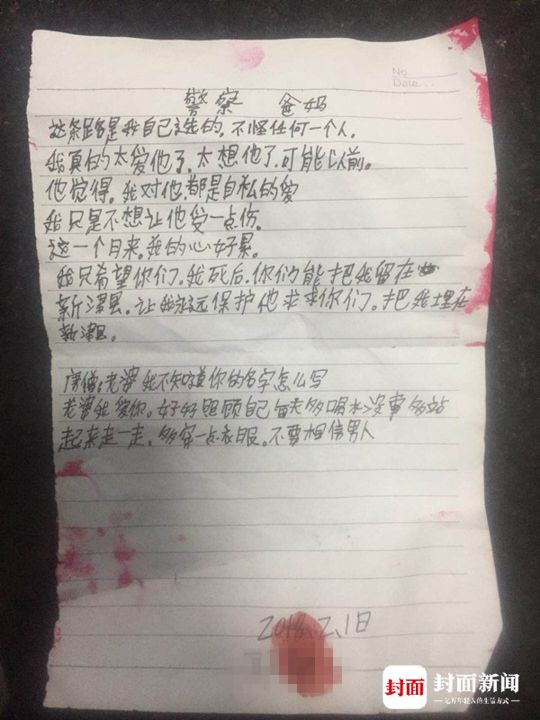 No
Date...
警察 爸妈
这条路是我自己选的,不怪任何一个人。
我真的太爱他了,太想他了,可能以前。
他觉得。我对他都是自私的爱
我只是不想让他受一点伤。
这一个月来,我的心好累。
我只希望你们,我死后,你们能把我留在
新津县。让我永远保护他求求你们。把我埋在
新津县。
唐僧:老婆我不知道你的名字怎么写
老婆我爱你。好好照顾自己每天多喝水没事多站
起来走一走,多穿一点衣服。不要相信男人
2018.2.1日
封面 封面新闻
亿万年轻人的生活方式